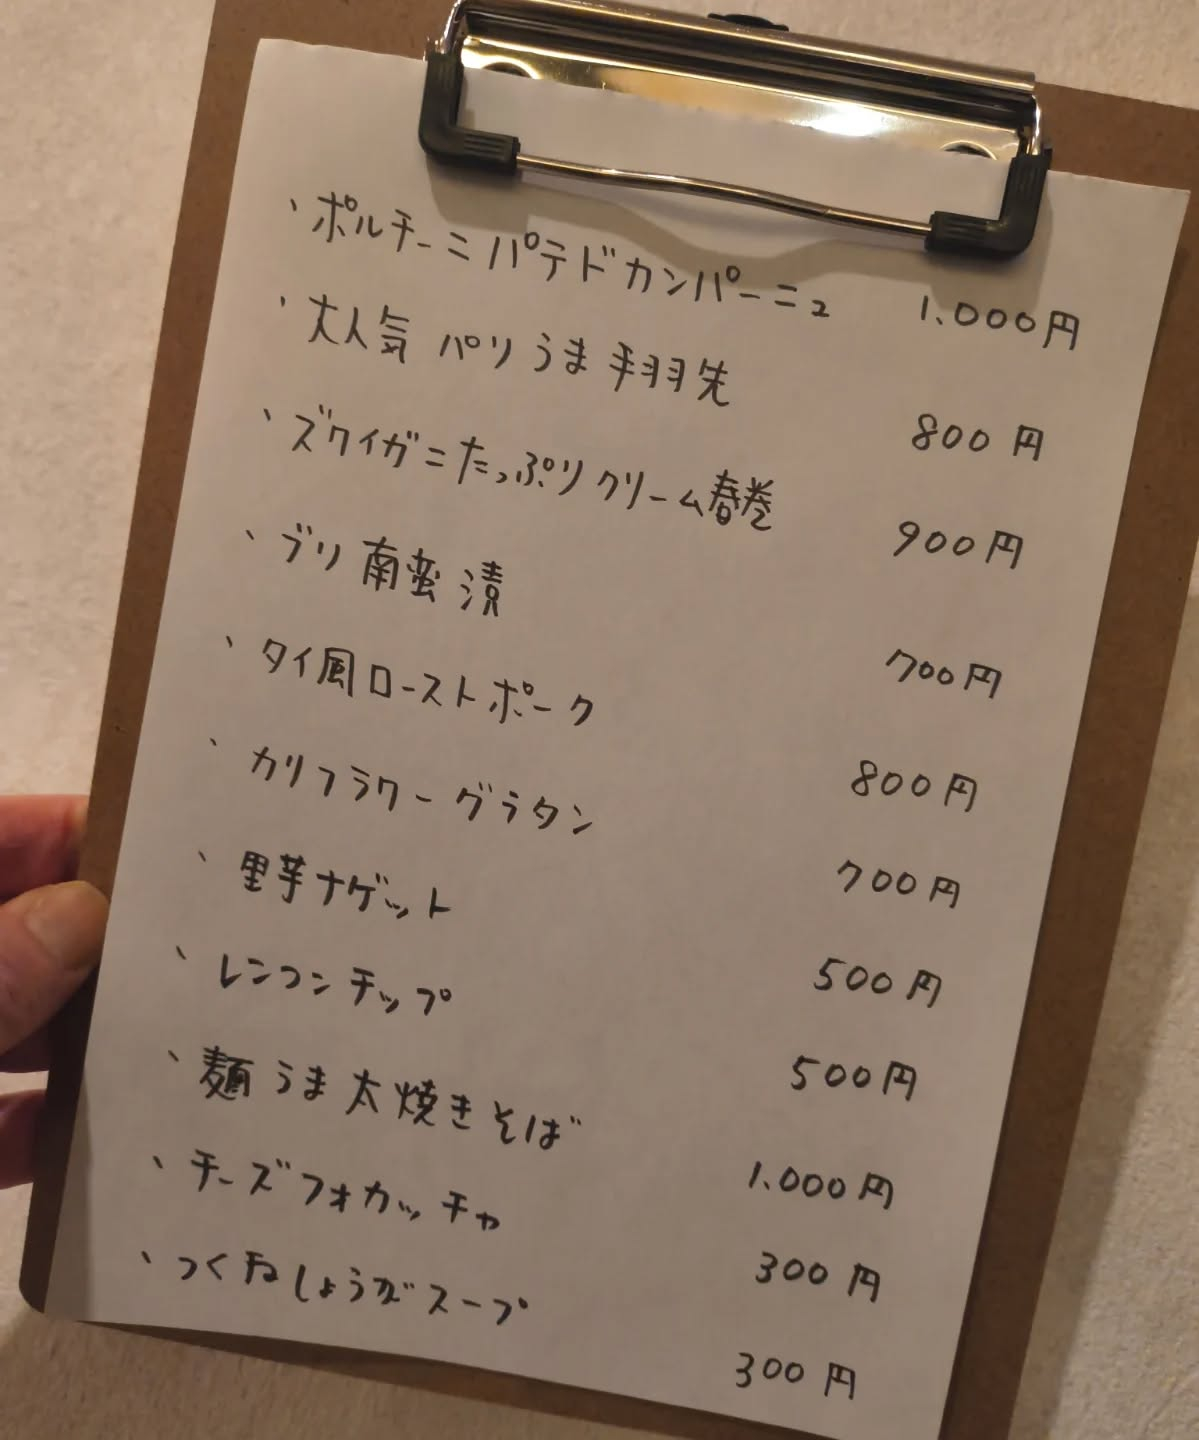 、ポルチーニパテドカンパーニュ 1.000円
、大人気 パリうま手羽先 800円
、ズワイガニたっぷりクリーム春巻 900円
、ブリ南蛮漬 700円
、タイ風ローストポーク 800円
、カリフラワーグラタン 700円
、里芋ナゲット 500円
、レンコンチップ 500円
、麺うま太焼きそば 1.000円
、チーズフォカッチャ 300円
、つくねしょうがスープ 300円